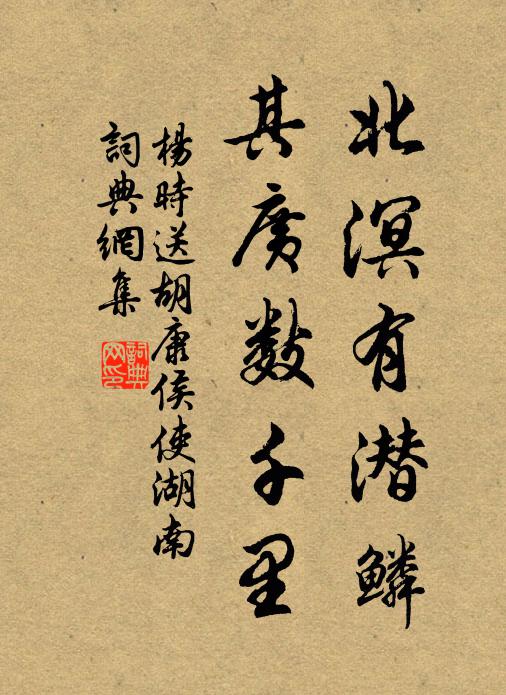 北溟有潜鳞
其廣数千里
楊時送胡康侯使湖南
詞典網集
詞典
网印